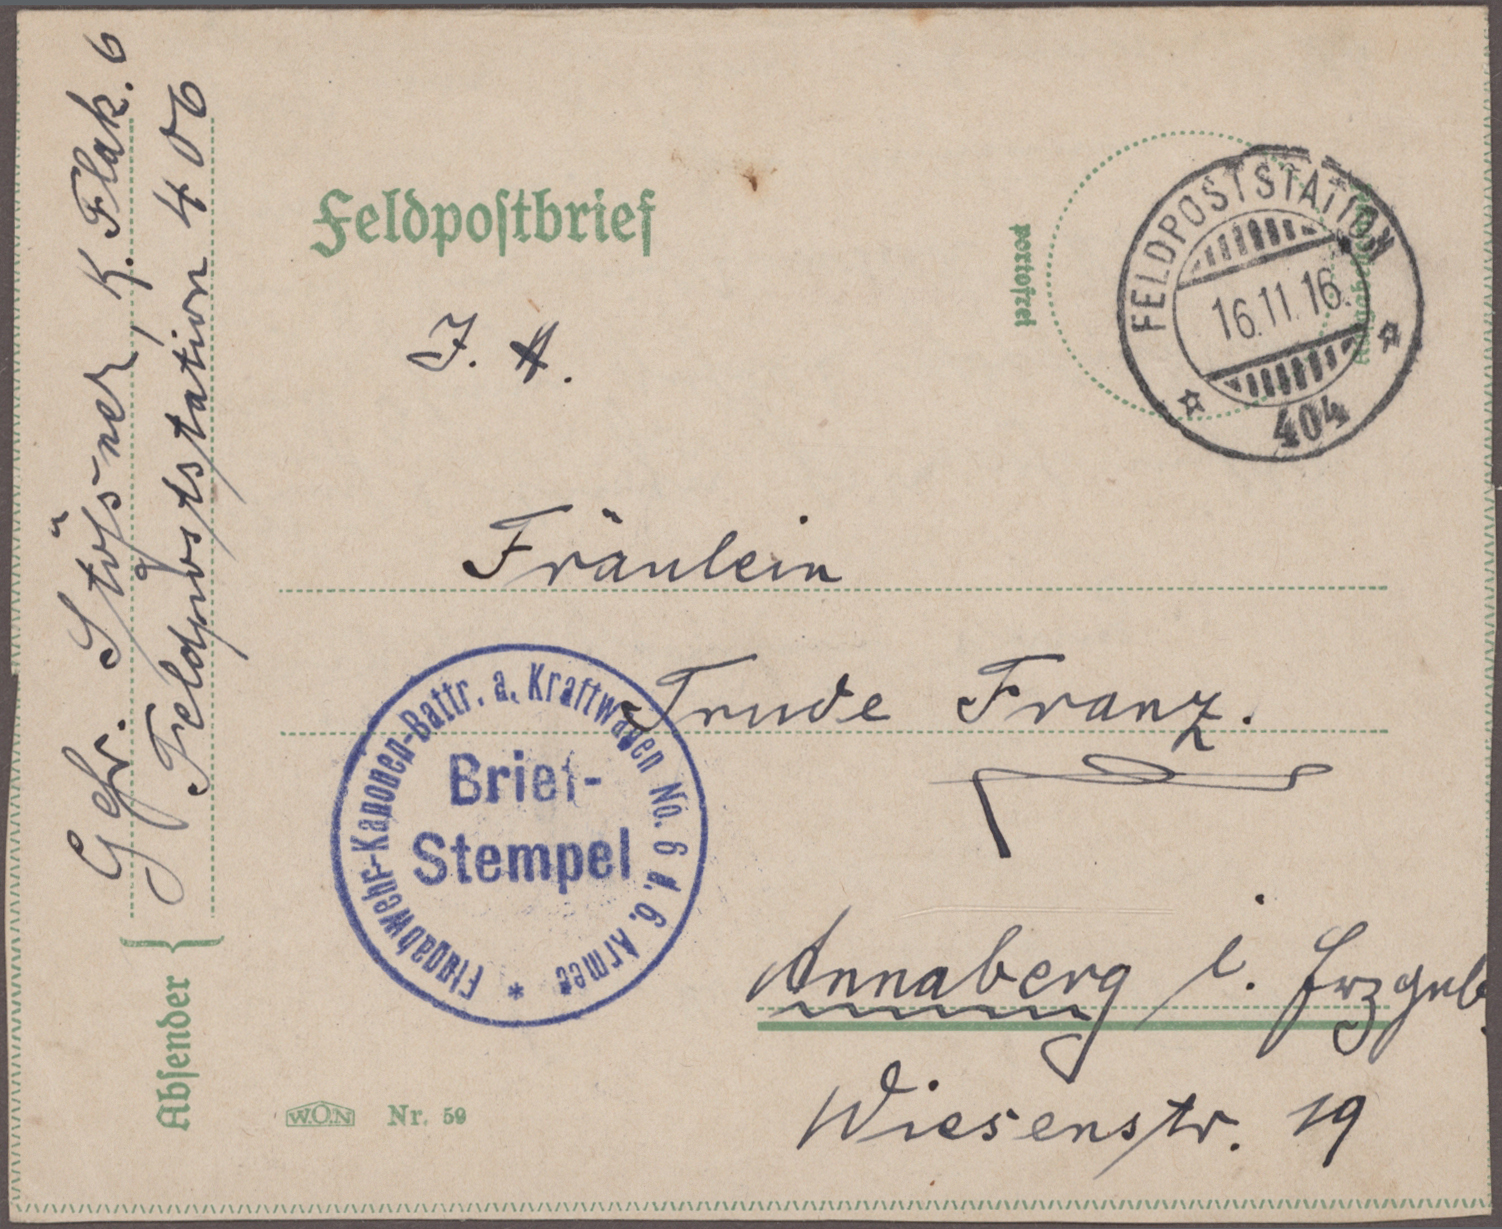 Gefr. Stößner, K. Flak. 6
Feldpoststation 406
Absender
Feldpostbrief
portofrei
FELDPOSTSTATION
16.11.16.
404
Fräulein
Trude Franz.
Flugabwehr-Kanonen-Battr. a. Kraftwagen No. 6 d. 6. Armee *
Brief-
Stempel
Annaberg i. Erzgeb.
Wiesenstr. 19
W.O.N Nr. 59